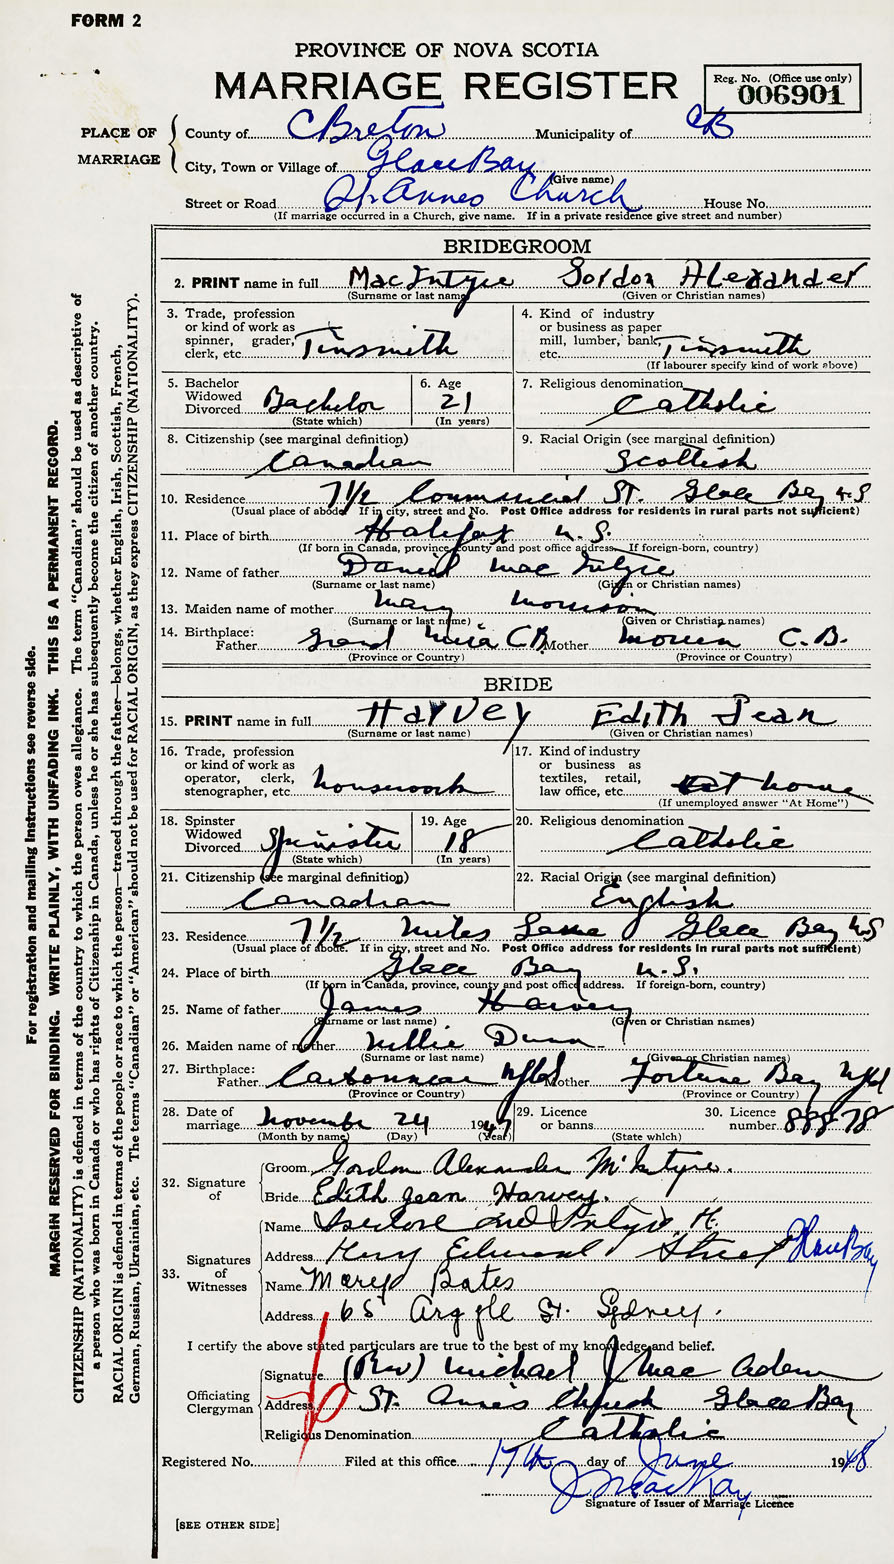 FORM 2
PROVINCE OF NOVA SCOTIA
MARRIAGE REGISTER
Reg. No. (Office use only)
006901
PLACE OF MARRIAGE
County of C Breton Municipality of CB
City, Town or Village of Glace Bay
(Give name)
Street or Road St. Annes Church House No.
(If marriage occurred in a Church, give name. If in a private residence give street and number)
BRIDEGROOM
2. PRINT name in full MacIntyre Gordon Alexander
(Surname or last name) (Given or Christian names)
3. Trade, profession or kind of work as spinner, grader, clerk, etc. Tinsmith
4. Kind of industry or business as paper mill, lumber, bank, etc. Tinsmith
(If labourer specify kind of work above)
5. Bachelor Widowed Divorced Bachelor
(State which)
6. Age 21
(In years)
7. Religious denomination Catholic
8. Citizenship (see marginal definition) Canadian
9. Racial Origin (see marginal definition) Scottish
10. Residence 7 1/2 Commercial St. Glace Bay N.S
(Usual place of abode. If in city, street and No. Post Office address for residents in rural parts not sufficient)
11. Place of birth Halifax N.S.
(If born in Canada, province, county and post office address. If foreign-born, country)
12. Name of father Daniel MacIntyre
(Surname or last name) (Given or Christian names)
13. Maiden name of mother Mary Morrison
(Surname or last name) (Given or Christian names)
14. Birthplace: Father Grand Mira C.B. Mother C.B.
(Province or Country) (Province or Country)
BRIDE
15. PRINT name in full Harvey Edith Jean
(Surname or last name) (Given or Christian names)
16. Trade, profession or kind of work as operator, clerk, stenographer, etc. housework
17. Kind of industry or business as textiles, retail, law office, etc. at home
(If unemployed answer "At Home")
18. Spinster Widowed Divorced Spinister
(State which)
19. Age 18
(In years)
20. Religious denomination Catholic
21. Citizenship (see marginal definition) Canadian
22. Racial Origin (see marginal definition) English
23. Residence 7 1/2 Lane Glace Bay N.S
(Usual place of abode. If in city, street and No. Post Office address for residents in rural parts not sufficient)
24. Place of birth Glace Bay N.S.
(If born in Canada, province, county and post office address. If foreign-born, country)
25. Name of father James Harvey
(Surname or last name) (Given or Christian names)
26. Maiden name of mother Dunn
(Surname or last name) (Given or Christian names)
27. Birthplace: Father Carbonnear Nfld Mother Fortune Bay Nfld
(Province or Country) (Province or Country)
28. Date of marriage November 24 1947
(Month by name) (Day) (Year)
29. Licence or banns
(State which)
30. Licence number 88878
32. Signature of
Groom Gordon Alexander McIntyre.
Bride Edith Jean Harvey.
33. Signatures of Witnesses
Name
Address Street Glace Bay
Name Mary Bates
Address 65 Argyle St. Sydney.
I certify the above stated particulars are true to the best of my knowledge and belief.
Officiating Clergyman
Signature (Rev) Michael J MacAdam
Address St. Anne's Church Glace Bay
Religious Denomination Catholic
Registered No. Filed at this office 17th day of June 1948
J MacKay
Signature of Issuer of Marriage Licence
[SEE OTHER SIDE]
For registration and mailing instructions see reverse side.
MARGIN RESERVED FOR BINDING. WRITE PLAINLY, WITH UNFADING INK. THIS IS A PERMANENT RECORD.
CITIZENSHIP (NATIONALITY) is defined in terms of the country to which the person owes allegiance. The term "Canadian" should be used as descriptive of
a person who was born in Canada or who has rights of Citizenship in Canada, unless he or she has subsequently become the citizen of another country.
RACIAL ORIGIN is defined in terms of the people or race to which the person—traced through the father—belongs, whether English, Irish, Scottish, French,
German, Russian, Ukrainian, etc. The terms "Canadian" or "American" should not be used for RACIAL ORIGIN, as they express CITIZENSHIP (NATIONALITY).